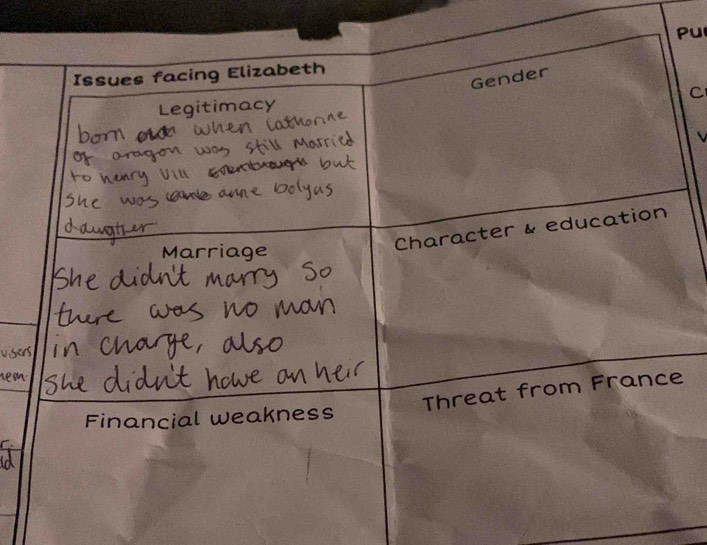 Pu
Issues facing Elizabeth
Legitimacy
born when Catherine
of aragon was still Married
to henry VIII but
she was anne bolyns
daugther
Gender
C
Marriage
She didn't marry so
there was no man
in charge, also
she didn't have an heir
Character & education
Financial weakness
Threat from France